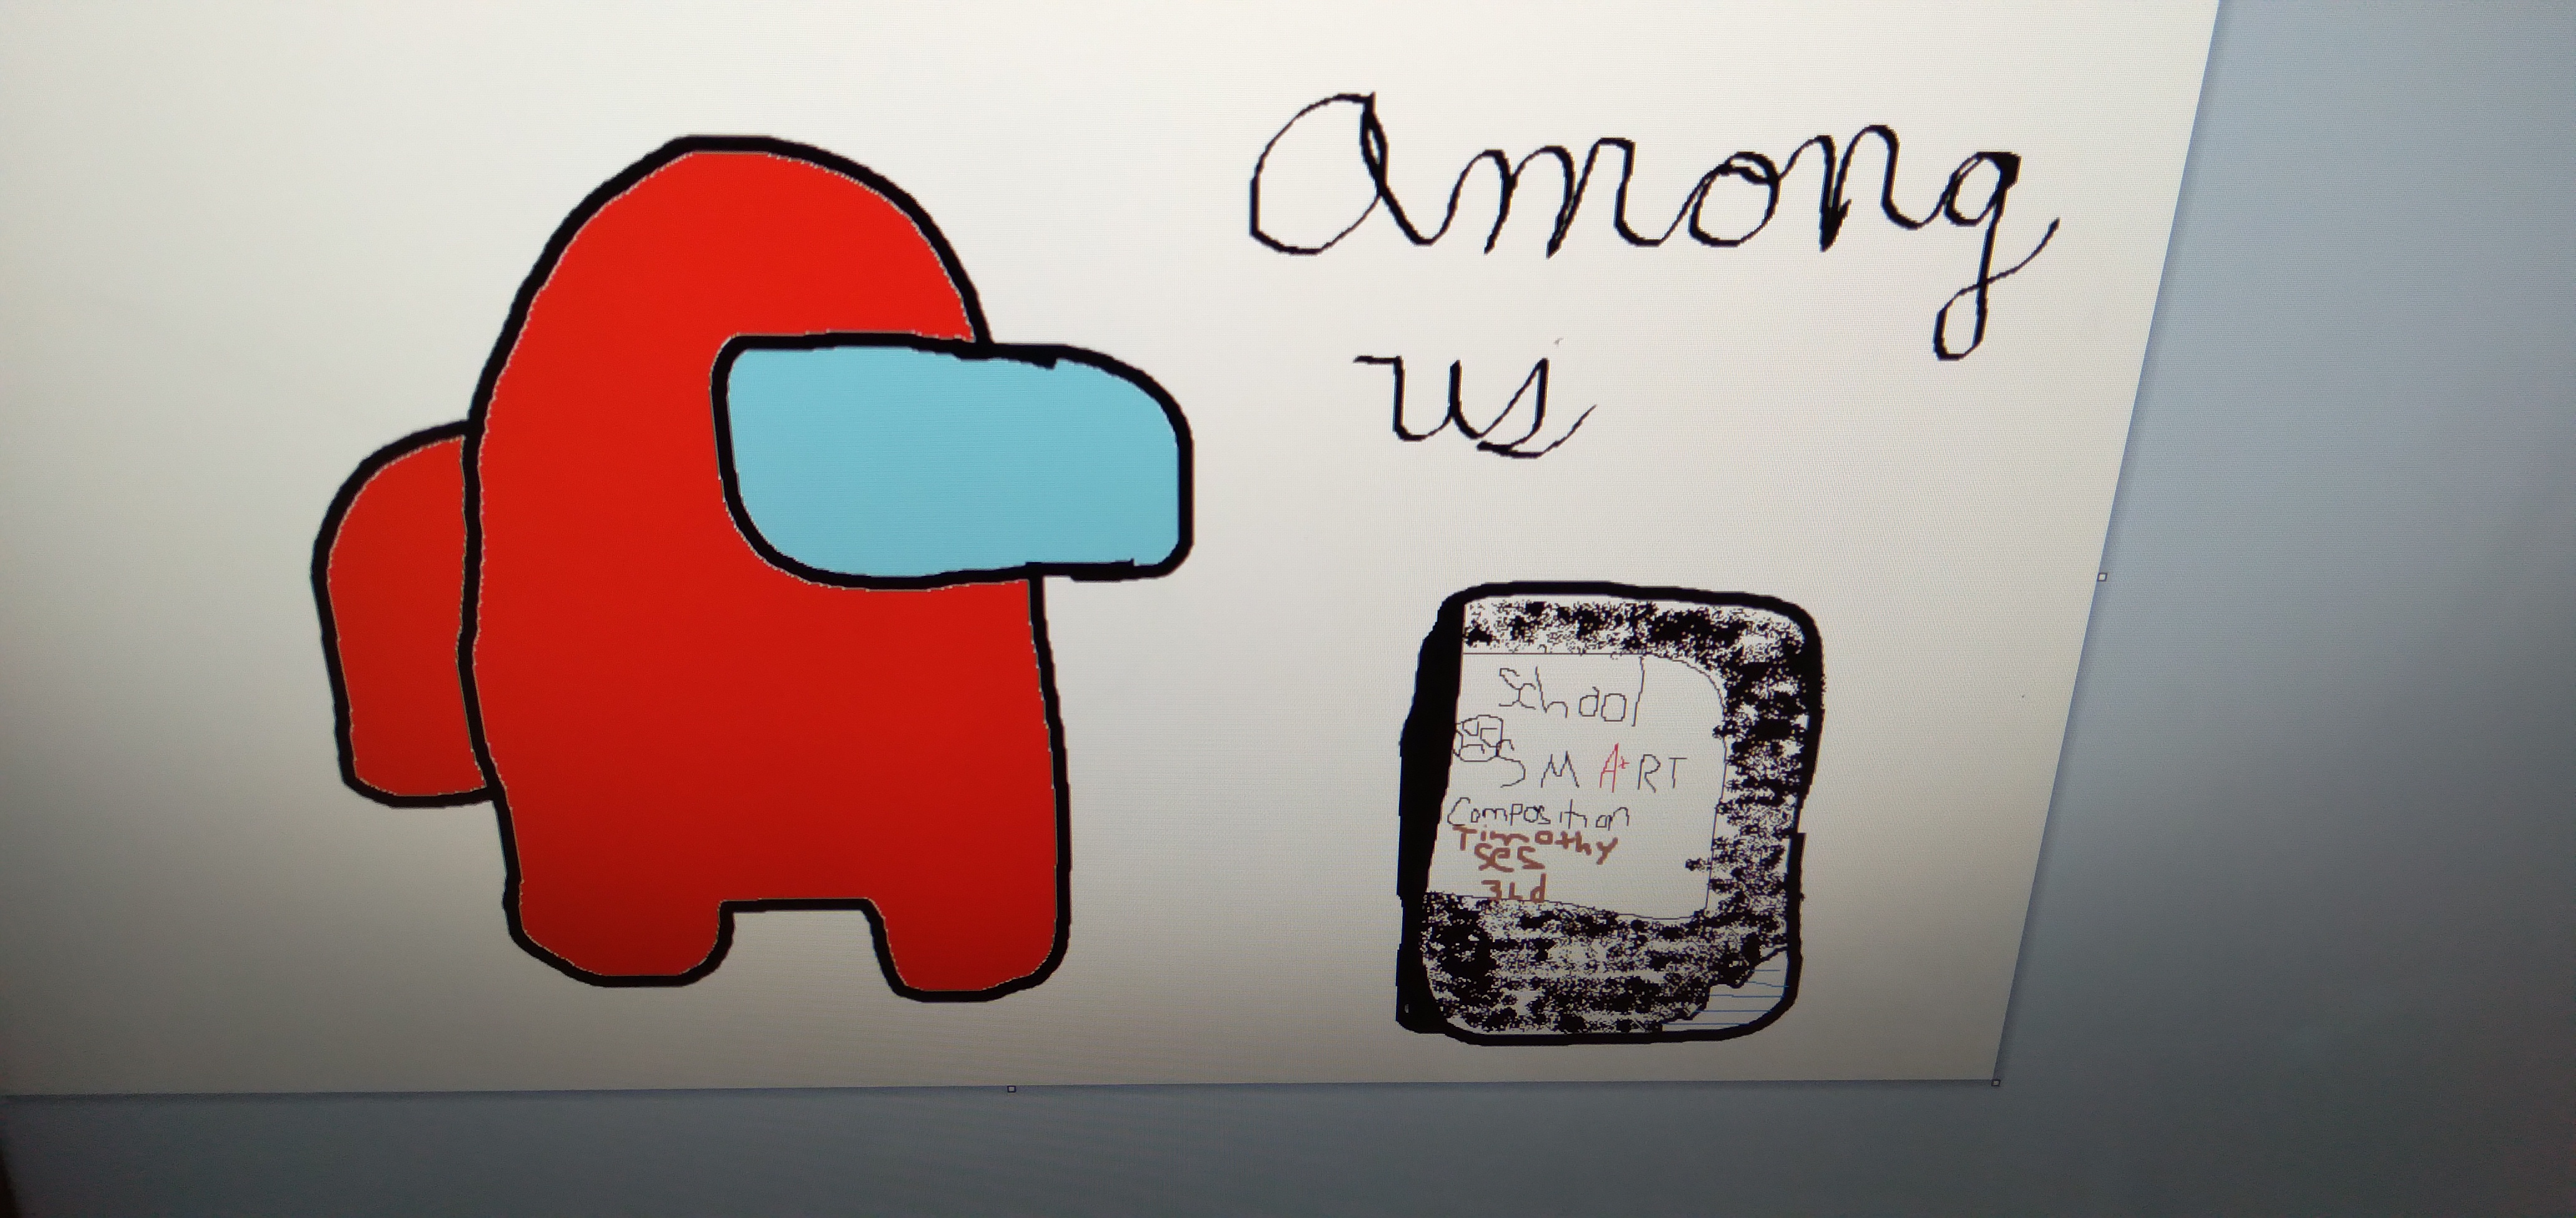 Among
us
School
SMA+RT
Composition
Timothy
SES